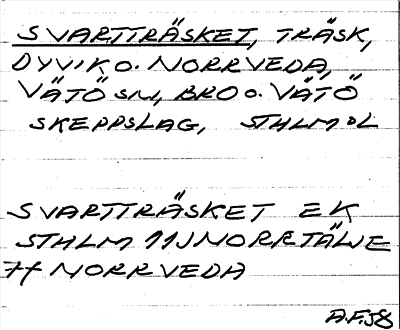 SVARTTRÄSKET, TRÄSK,
DYVIK O. NORRVEDA,
VÄTÖ SN, BRO O. VÄTÖ
SKEPPSLAG, STHLMS L
SVARTTRÄSKET EK
STHLM 11J NORRTÄLJE
7f NORRVEDA
A.F. 58